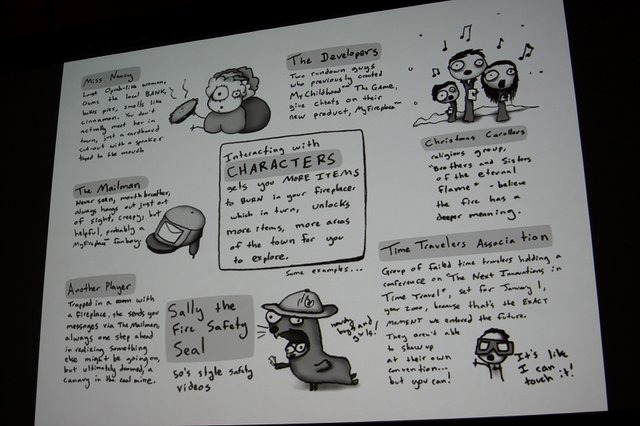 Miss Nancy
Large Oprah-like woman,
Owns the local BANK,
bakes pies, smells like
cinnamon. You don't
actually meet her in
town, just a cardboard
cut-out with a speaker
taped to the mouth
The Developers
Two rundown guys
who previously created
My Childhood™ The Game,
give cheats on their
new product, MyFireplace™
Christmas Carollers
religious group,
"Brothers and Sisters
of the eternal
Flame" - believe
the fire has a
deeper meaning.
Interacting with
CHARACTERS
gets you MORE ITEMS
to BURN in your fireplace.
which in turn, unlocks
more items, more areas
of the town for you
to explore.
Some examples...
The Mailman
Never seen, mouth breather,
always hangs out just out
of sight, creepy, but
helpful, probably a
MyFireplace™ fanboy.
Time Travelers Association
Group of failed time travelers holding a
conference on "The Next Innovations in
Time Travel", set for January 1,
year 2000, because that's the EXACT
MOMENT we entered the future.
They aren't able
to show up
at their own
convention...
but you can!
It's like
I can
touch it!
Another Player
Trapped in a room with
a fireplace, she sends you
messages via The Mailman,
always one step ahead
in realizing something
else might be going on,
but ultimately doomed, a
canary in the coal mine.
Sally the
Fire Safety
Seal
50's style safety
videos
boys and
girls!